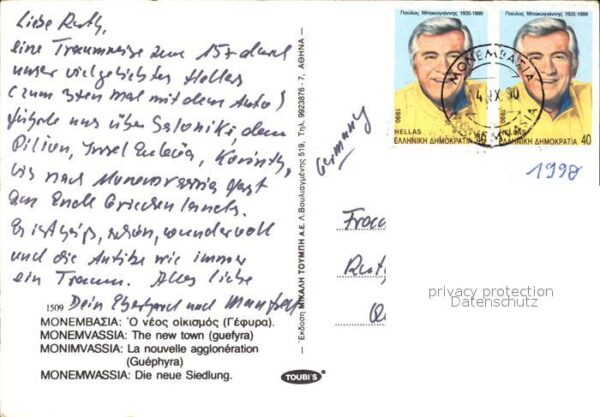 Liebe Ruth,
eine Traumreise zum 15x durch
unser vielgeliebtes Hellas
(zum 3ten mal mit dem Auto)
führte uns über Saloniki, dem
Pilion, Insel Euböa, Korinth,
bis nach Monemvassia fast
am Ende Griechenlands.
Es ist heiß, schön, wundervoll
und die Antike wie immer
ein Traum. Alles liebe
Dein Eberhard und Manfred
1509
ΜΟΝΕΜΒΑΣΙΑ: Ὁ νέος οἰκισμός (Γέφυρα).
MONEMVASSIA: The new town (guefyra)
MONIMVASSIA: La nouvelle agglonération
(Guéphyra)
MONEMWASSIA: Die neue Siedlung.
Ἔκδοση ΜΙΧΑΛΗ ΤΟΥΜΠΗ Α.Ε. Λ. Βουλιαγμένης 519, Τηλ. 9923876 - 7, ΑΘΗΝΑ
TOUBI'S
Παύλος Μπακογιάννης 1935-1989
Παύλος Μπακογιάννης 1935-1989
1990
HELLAS
ΕΛΛΗΝΙΚΗ ΔΗΜΟΚΡΑΤΙΑ 40
1990
HELLAS
ΕΛΛΗΝΙΚΗ ΔΗΜΟΚΡΑΤΙΑ 40
ΜΟΝΕΜΒΑΣΙΑ
4 IX 90
MONEMVASIA
1990
Germany
Frau
Ruth
privacy protection
Datenschutz